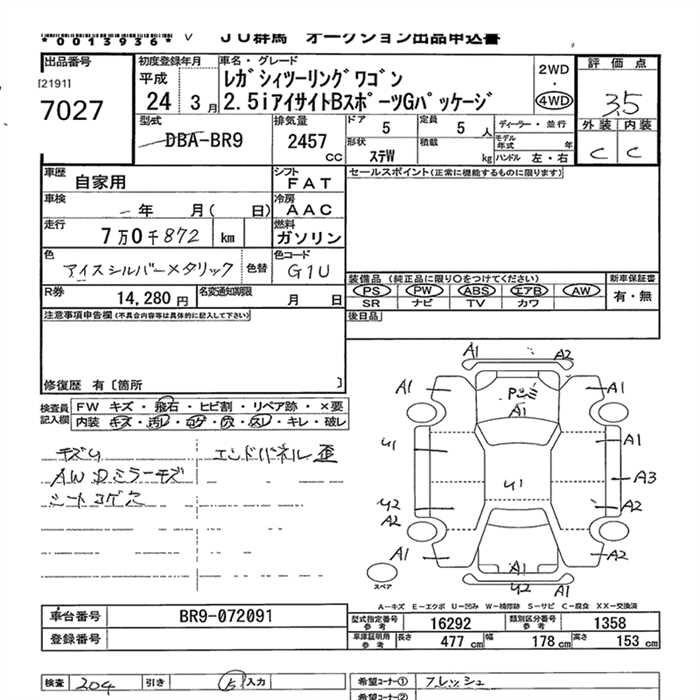 *0013936*
JU群馬 オークション出品申込書
出品番号 初度登録年月 車名・グレード 評価点
[2191]
7027
平成 24 3月
レガシィツーリングワゴン
2.5iアイサイトBスポーツGパッケージ
2WD・4WD
3.5
外装 内装
C C
型式 排気量 ドア 定員 ディーラー・並行
DBA-BR9 2457 cc 5 5 人
モデル年式 年
形状 積載
ステW kg ハンドル 左・右
車歴 自家用 シフト FAT
セールスポイント(正常に機能するものに限ります)
車検 年 月( 日) 冷房 AAC
走行 7万0千872 km 燃料 ガソリン
色 アイスシルバーメタリック 色替 色コード G1U
装備品(純正品に限り○をつけてください) 新車保証書
PS PW ABS エアB AW 有・無
SR ナビ TV カワ
R券 14,280円 名変通知期限 月 日
後日品
注意事項申告欄(不具合内容等は具体的に記入して下さい)
修復歴 有〔箇所 〕
検査員記入欄
FW キズ・飛石・ヒビ割・リペア跡・×要
内装 キズ・汚レ・コゲ・穴・スレ・キレ・破レ
キズム エンドパネル歪
AW Dミラーキズ
シートコゲ穴
A1 A2
A1 A1 A1
U1 A1
U1 A3
U2 A2
A2
A1 A1 A2
U2 A1
スペア
A-キズ E-エクボ U-凹み W-補修跡 S-サビ C-腐食 XX-交換済
車台番号 BR9-072091
型式指定番号 参考 16292 類別区分番号 参考 1358
登録番号
車庫証明用 参考 長さ 477 cm 幅 178 cm 高さ 153 cm
検査 204 引き 入力
希望コーナー① フレッシュ
希望コーナー②